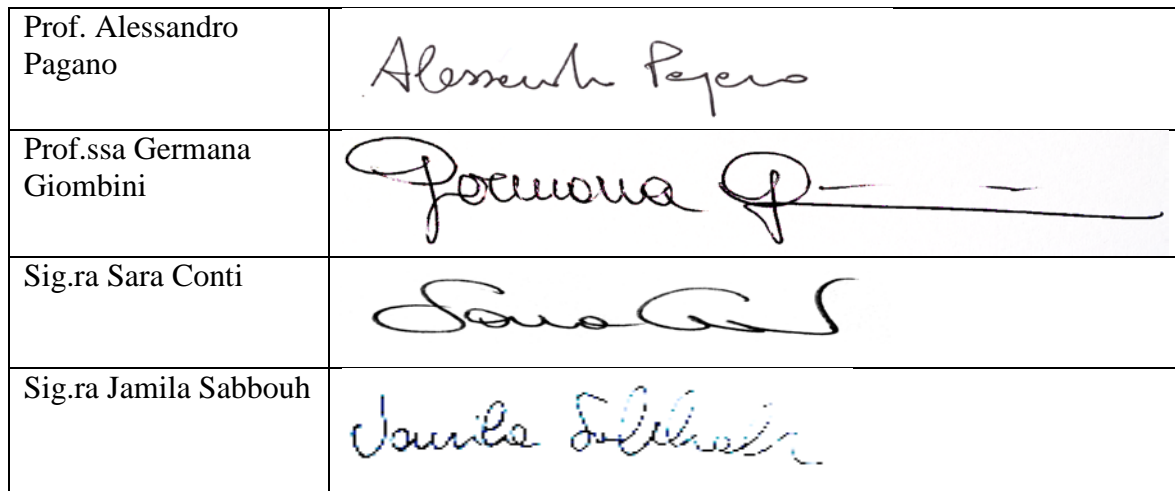 Prof. Alessandro
Pagano
Alessandro Pagano
Prof.ssa Germana
Giombini
Germana
Sig.ra Sara Conti
Sara Conti
Sig.ra Jamila Sabbouh
Jamila Sabbouh